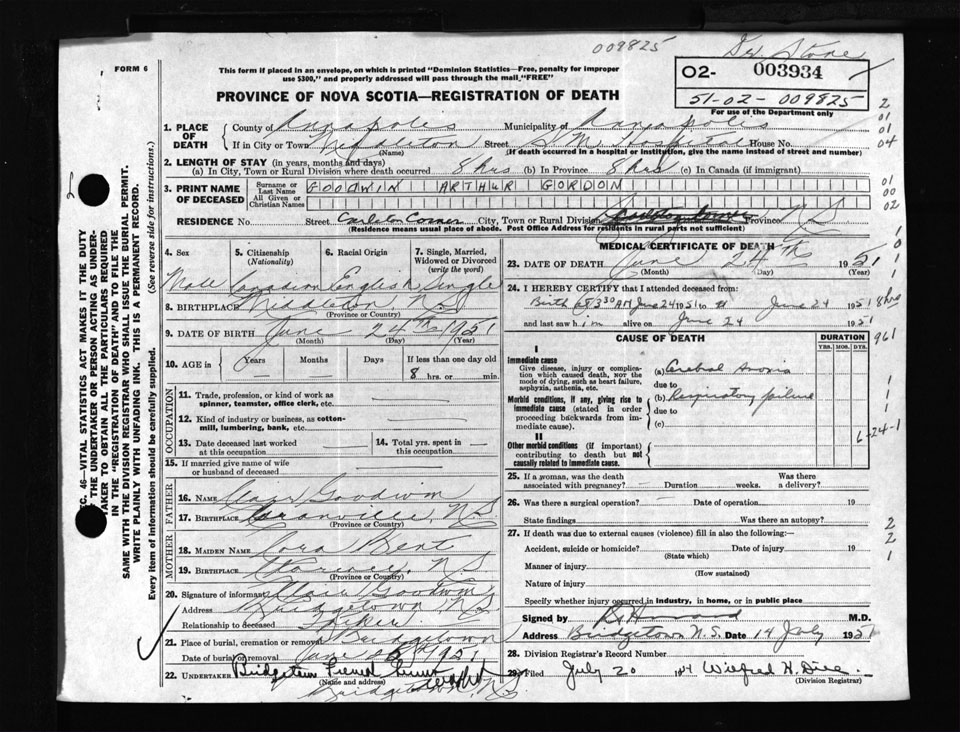 009825
FORM 6
This form if placed in an envelope, on which is printed "Dominion Statistics—Free, penalty for improper
use $300," and properly addressed will pass through the mail "FREE"
O2- 003934
51-02- 009825
For use of the Department only
PROVINCE OF NOVA SCOTIA—REGISTRATION OF DEATH
1. PLACE OF DEATH
County of Annapolis Municipality of Annapolis
If in City or Town Middleton (Name) Street S. M. Hospital House No.
(If death occurred in a hospital or institution, give the name instead of street and number)
2. LENGTH OF STAY (in years, months and days)
(a) In City, Town or Rural Division where death occurred 8 hrs (b) In Province 8 hrs (c) In Canada (if immigrant)
3. PRINT NAME OF DECEASED
Surname or Last Name GOODWIN ARTHUR GORDON
All Given or Christian Names
RESIDENCE No. Street Carleton Corner City, Town or Rural Division Province N S
(Residence means usual place of abode. Post Office Address for residents in rural parts not sufficient)
4. Sex
Male
5. Citizenship (Nationality)
Canadian
6. Racial Origin
English
7. Single, Married, Widowed or Divorced (write the word)
Single
8. BIRTHPLACE Middleton, N S
(Province or Country)
9. DATE OF BIRTH June 24th 1951
(Month) (Day) (Year)
10. AGE in Years Months Days If less than one day old
— — — 8 hrs. or min.
OCCUPATION
11. Trade, profession, or kind of work as
spinner, teamster, office clerk, etc. —
12. Kind of industry or business, as cotton-
mill, lumbering, bank, etc. —
13. Date deceased last worked
at this occupation —
14. Total yrs. spent in
this occupation —
15. If married give name of wife
or husband of deceased —
FATHER
16. NAME Goodwin
17. BIRTHPLACE Granville, N S
(Province or Country)
MOTHER
18. MAIDEN NAME Cora Bent
19. BIRTHPLACE N S
(Province or Country)
20. Signature of informant Goodwin
Address Bridgetown, N S
Relationship to deceased Father
21. Place of burial, cremation or removal Bridgetown
Date of burial or removal June 1951
22. UNDERTAKER Bridgetown
(Name and address)
Bridgetown, N S
MEDICAL CERTIFICATE OF DEATH
23. DATE OF DEATH June 24th 1951
(Month) (Day) (Year)
24. I HEREBY CERTIFY that I attended deceased from:
Birth 8:30 AM June 24 1951 to June 24 1951
and last saw him alive on June 24 1951
8 hrs
CAUSE OF DEATH
DURATION
YRS. MOS. DYS.
961
I
Immediate cause
Give disease, injury or complica-
tion which caused death, NOT the
mode of dying, such as heart failure,
asphyxia, asthenia, etc.
(a) Cerebral Anoxia
due to
Morbid conditions, if any, giving rise to
immediate cause (stated in order
proceeding backwards from im-
mediate cause).
(b) Respiratory failure
due to
(c)
6-24-1
II
Other morbid conditions (if important)
contributing to death but not
causally related to immediate cause.
25. If a woman, was the death
associated with pregnancy? — Duration weeks. Was there
a delivery?
26. Was there a surgical operation? — Date of operation 19
State findings Was there an autopsy?
27. If death was due to external causes (violence) fill in also the following:—
Accident, suicide or homicide? Date of injury 19
(State which)
Manner of injury
(How sustained)
Nature of injury
Specify whether injury occurred in industry, in home, or in public place
Signed by M.D.
Address Bridgetown N. S. Date 14 July 1951
28. Division Registrar's Record Number
29. Filed July 20
(Division Registrar)
SEC. 46—VITAL STATISTICS ACT MAKES IT THE DUTY
OF THE UNDERTAKER OR PERSON ACTING AS UNDER-
TAKER TO OBTAIN ALL THE PARTICULARS REQUIRED
IN THE "REGISTRATION OF DEATH" AND TO FILE THE
SAME WITH THE DIVISION REGISTRAR WHO SHALL ISSUE THE BURIAL PERMIT.
WRITE PLAINLY WITH UNFADING INK. THIS IS A PERMANENT RECORD.
Every item of information should be carefully supplied. (See reverse side for instructions.)